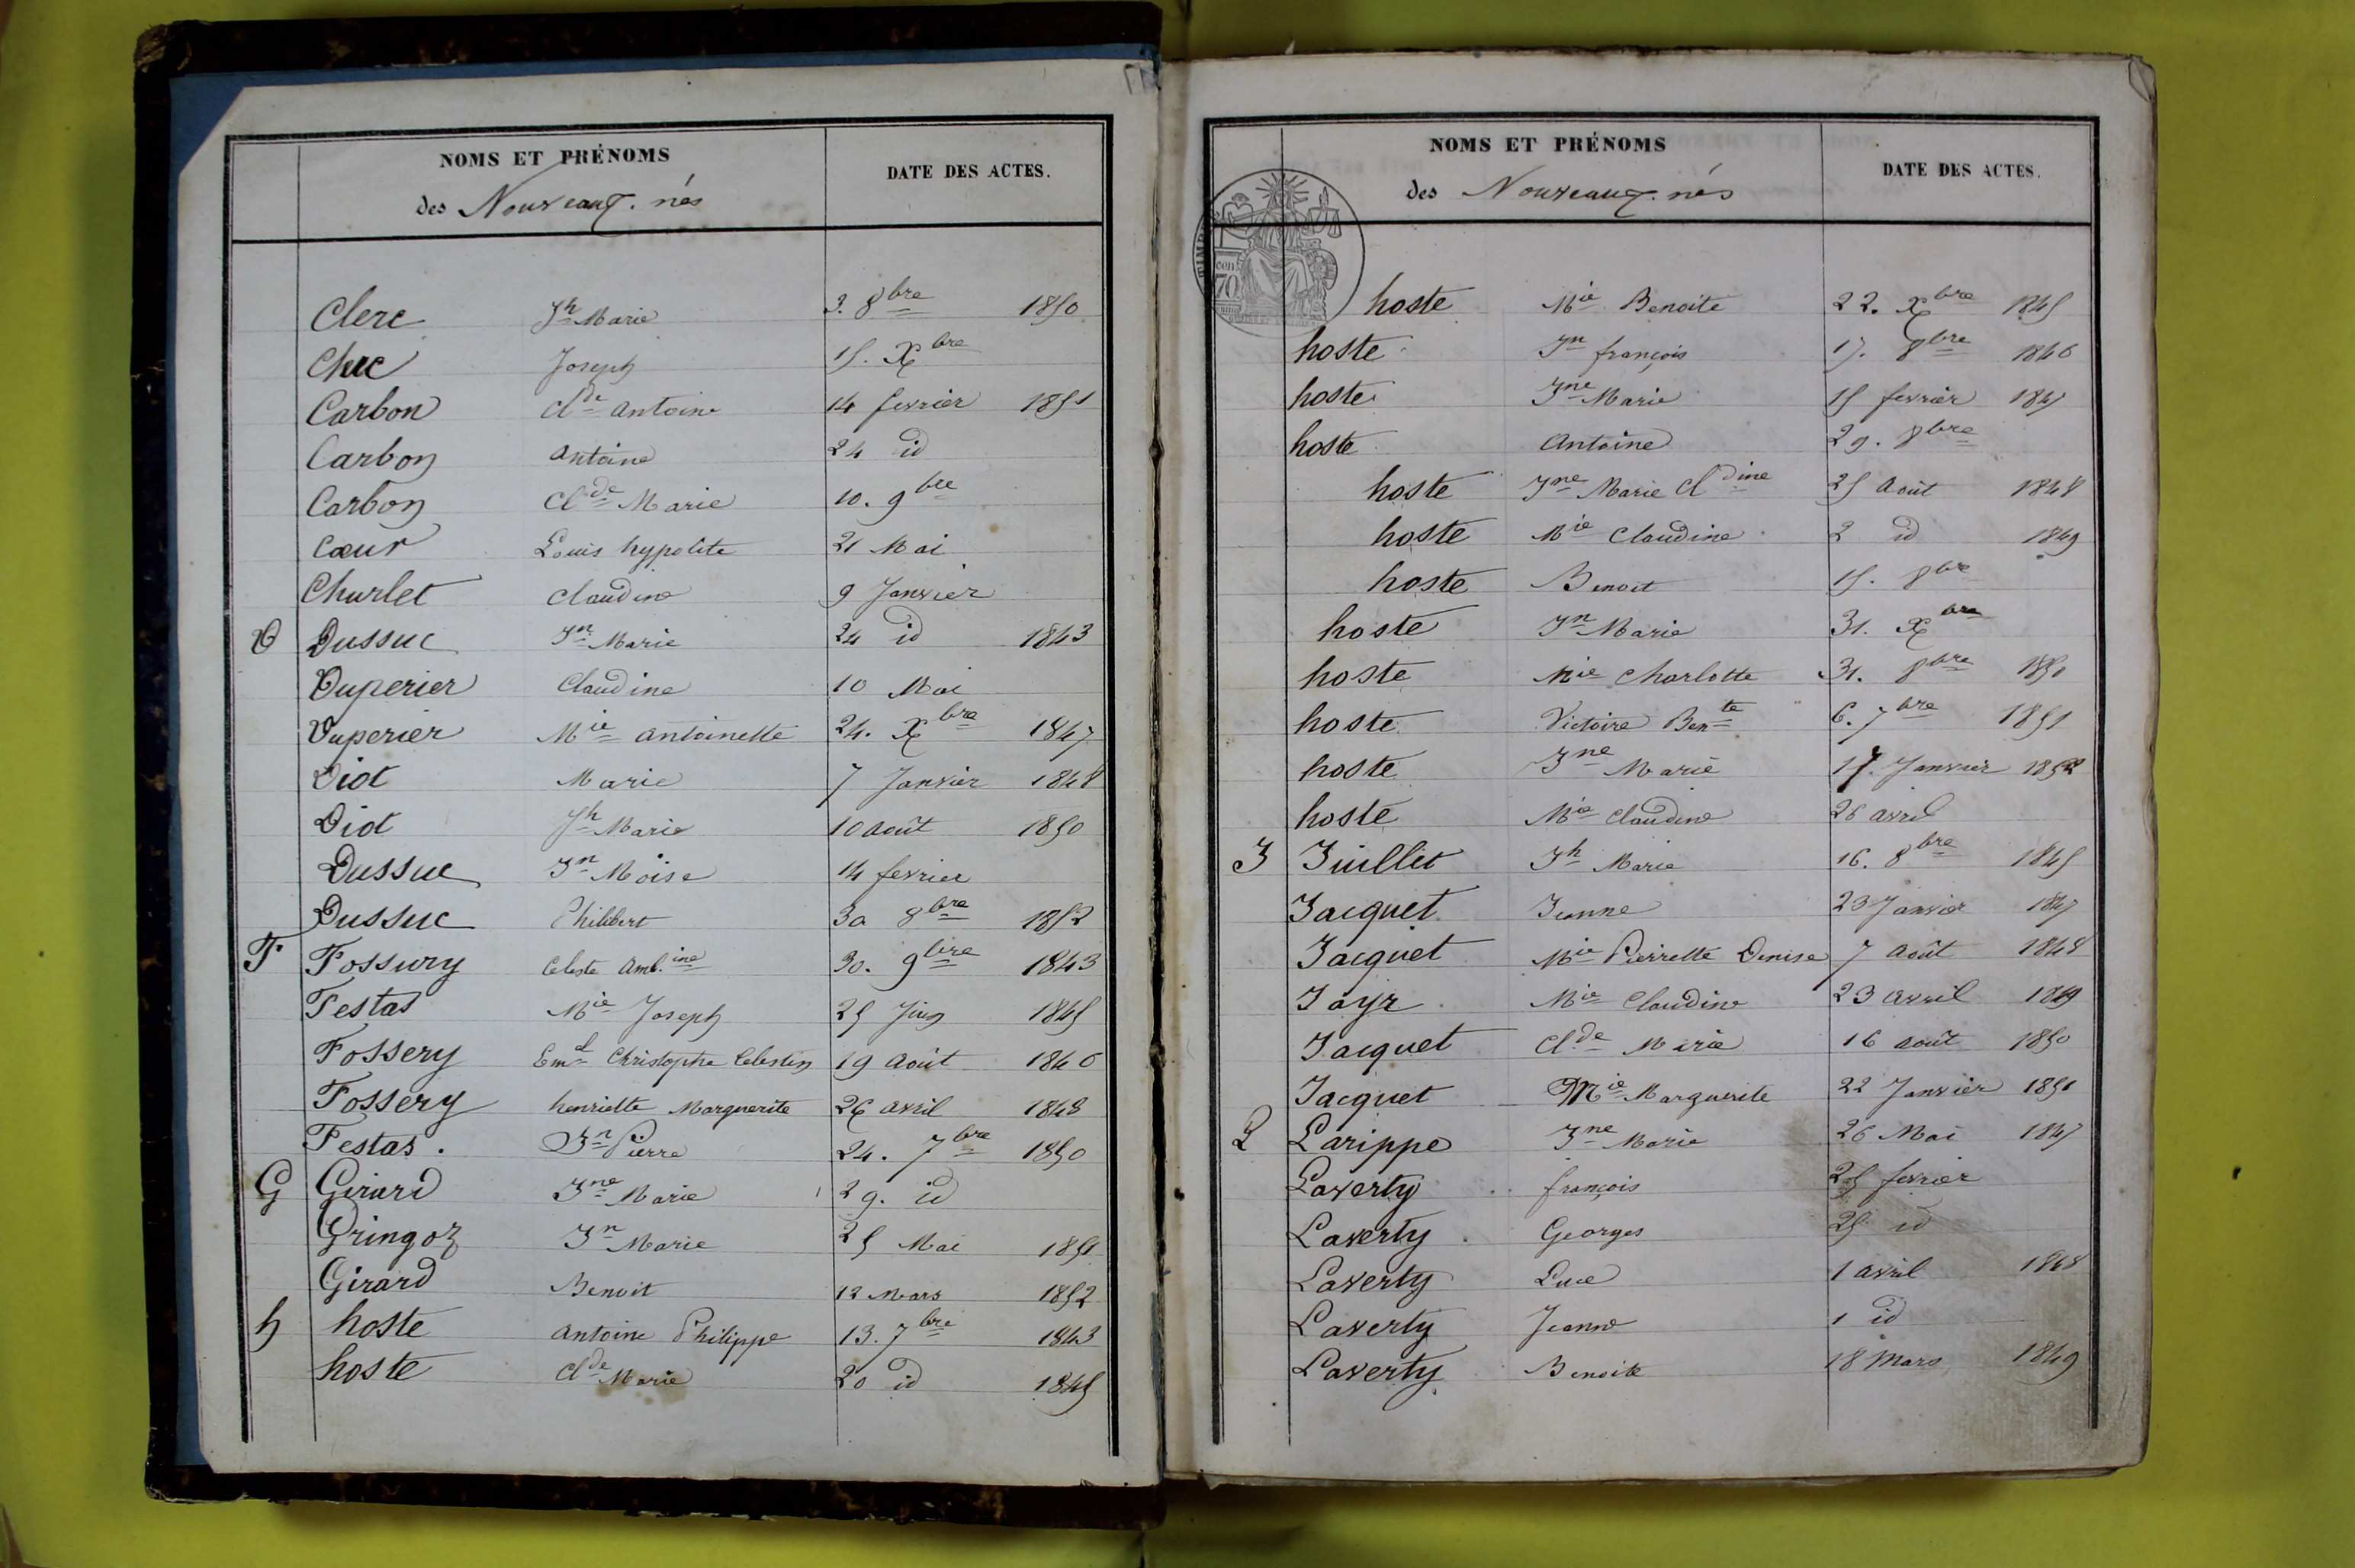 NOMS ET PRÉNOMS
DATE DES ACTES.
des Nouveaux. nés
Clerc Jh Marie 3. 8bre 1850
Clerc Joseph 15. Xbre
Carbon Clde antoine 14 fevrier 1851
Carbon antoine 24 id
Carbon Clde Marie 10. 9bre
Cœur Louis hypolite 21 Mai
Churlet Claudine 9 Janvier
D Dussuc Jn Marie 24 id 1843
Duperier Claudine 10 Mai
Duperier Mie antoinette 24. Xbre 1847
Diot Marie 7 Janvier 1848
Diot Jh Marie 10 août 1850
Dussuc Jn Moïse 14 fevrier
Dussuc Philibert 30 8bre 1852
F Fossury Celeste Amb.ine 30. 9bre 1843
Festas Mie Joseph 25 Juin 1845
Fossery Eml Christophe Celestin 19 août 1846
Fossery henriette Marguerite 26 avril 1848
Festas. Jn Pierre 24. 7bre 1850
G Girard Jne Marie 29. id
Gringoz Jn Marie 25 Mai 1851
Girard Benoit 12 Mars 1852
h hoste antoine Philippe 13. 7bre 1843
hoste Clde Marie 20 id 1845
NOMS ET PRÉNOMS
DATE DES ACTES.
des Nouveaux. nés
TIMB
70
hoste Mie Benoite 22. Xbre 1845
hoste Jn françois 17. 8bre 1846
hoste Jne Marie 15 fevrier 1847
hoste Antoine 29. 8bre
hoste Jne Marie Cldine 25 Août 1848
hoste Mie Claudine 2 id 1849
hoste Benoit 15. 8bre
hoste Jn Marie 31. Xbre
hoste Mie Charlotte 31. 8bre 1850
hoste Victoire Bente 6. 7bre 1851
hoste Jne Marie 17. Janvier 1852
hoste Mie Claudine 26 avril
J Juillet Jh Marie 16. 8bre 1845
Jacquet Jeanne 23 Janvier 1847
Jacquet Mie Pierrette Denise 7 Août 1848
Jayr Mie Claudine 23 avril 1849
Jacquet Clde Marie 16 août 1850
Jacquet Mie Marguerite 22 Janvier 1851
L Larippe Jne Marie 26 Mai 1847
Laverty françois 25 fevrier
Laverty Georges 25 id
Laverty Luce 1 avril 1848
Laverty Jeanne 1 id
Laverty Benoite 18 Mars 1849